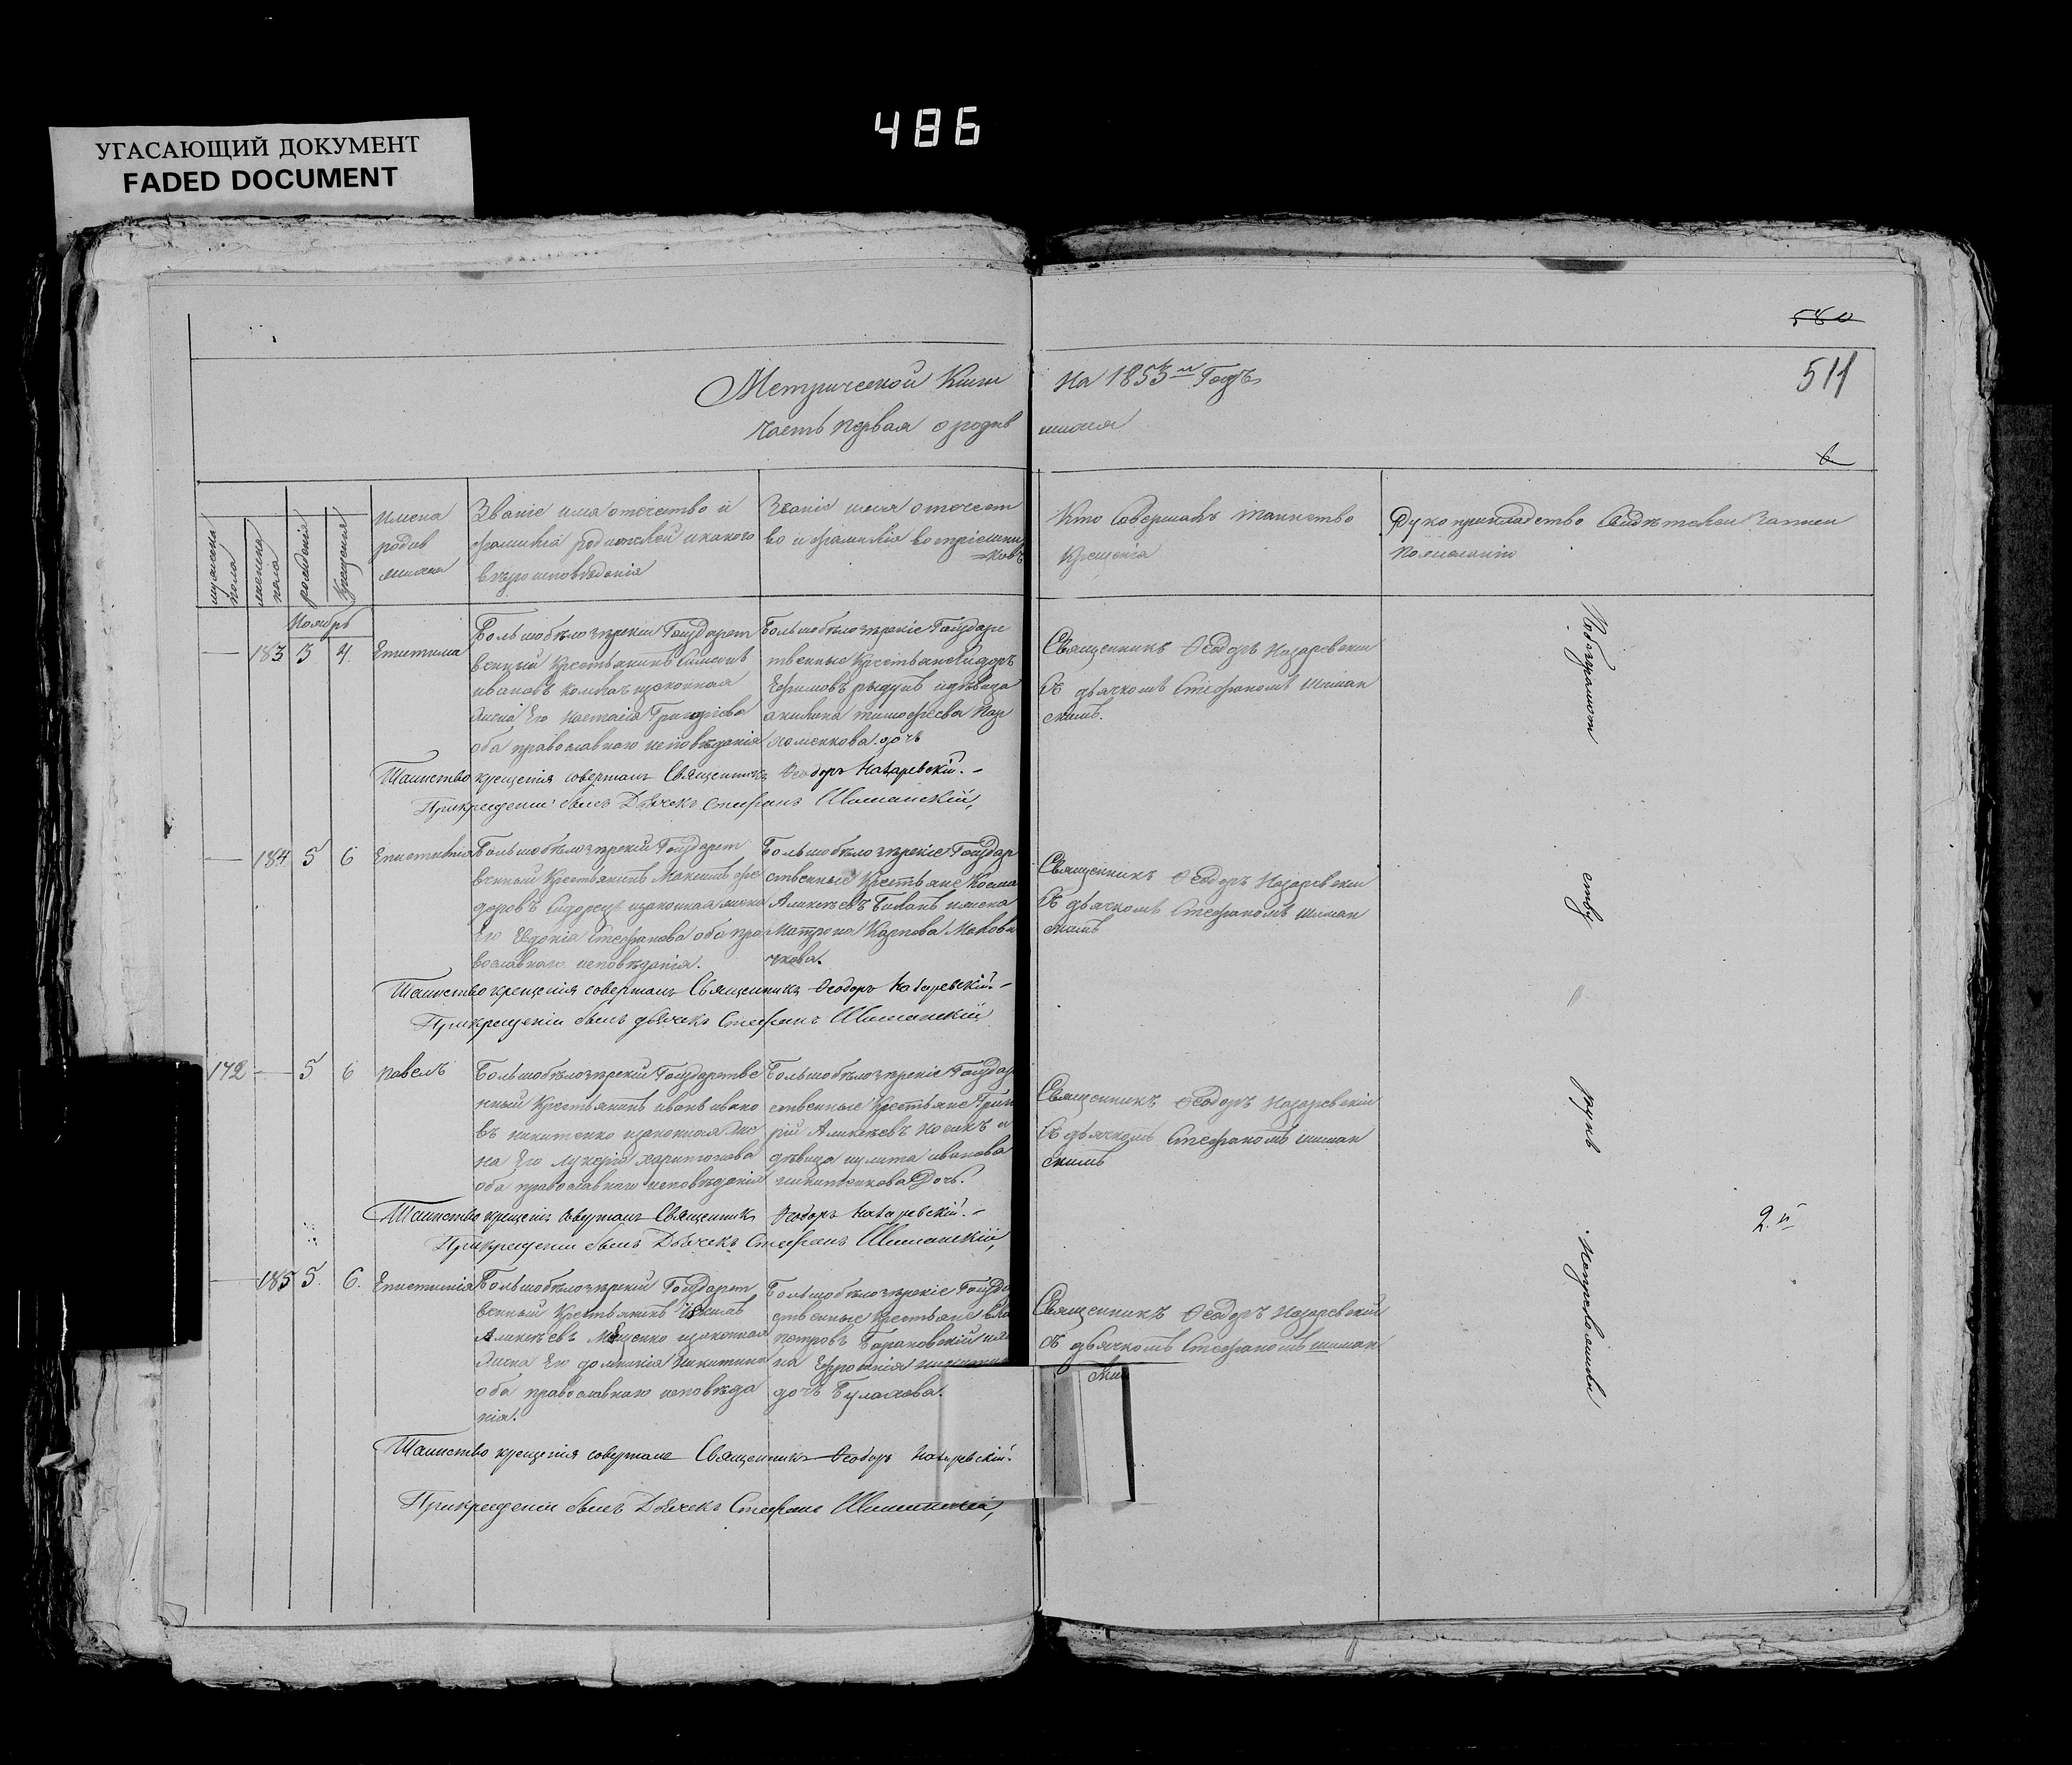 486
УГАСАЮЩИЙ ДОКУМЕНТ
FADED DOCUMENT
580
511
Метрической Книги на 1853й Годъ
часть первая о родив шихся
мужеска пола
женска пола
рожденіе
Крещенія
Имена родив шихся
Званіе имя отечество и
фамилія родителей и какого
вѣроисповѣданія
Званіе имя отечест
во и фамилія воспріемни
=ковъ
Кто совершалъ таинство
крещенія
Рукоприкладство свидѣтелей записи
по желанію
Ноябрь
— 183 3 4 Епистимia
Большобѣлозѣрскій Государст
венный Крестьянинъ Симеонъ
ивановъ изаконная
жена Его настасія Григоріева
оба православнаго исповѣданія
Большобѣлозѣрскіе Государс
твенные Крестьяне Сидоръ
Ефимовъ идѣвица
акилина тимофеева Пар
хоменкова дочь
Священникъ Ѳеодоръ Назаревскій
Съ дьячкомъ Стефаномъ шиман
скимъ.
Таинство крещенія совершалъ Священникъ Ѳеодоръ Назаревскій.-
При крещеніи былъ Дьячекъ Стефанъ Шиманскій,
— 184 5 6 Епистимія
Большобѣлозѣрскій Государст
венный Крестьянинъ Максимъ фео
доровъ Сидорецъ изаконная жена
Его Евдокія Стефанова оба пра
вославнаго исповѣданія.
Большобѣлозѣрскіе Государ
ственные Крестьяне Косма
Аликсѣевъ ижена
Матрона Карпова
чкова.
Священникъ Ѳеодоръ Назаревскій
Съ дьячкомъ Стефаномъ шиман
скимъ
Таинство крещенія совершалъ Священникъ Ѳеодоръ Назаревскій.-
При крещеніи былъ дьячекъ Стефанъ Шиманскій
172 — 5 6 павелъ
Большобѣлозѣрскій Государстве
нный Крестьянинъ иванъ ивано
въ никитенко изаконная же
на Его лукерія харитонова
оба православнаго исповѣданія
Большобѣлозѣрскіе Государ
ственные Крестьяне Григо
рій Аликсѣевъ Носикъ и
дѣвица иулита иванова
никитенкова Дочь.
Священникъ Ѳеодоръ Назаревскій
Съ дьячкомъ Стефаномъ шиман
скимъ
Таинство крещенія совершалъ Священникъ Ѳеодоръ Назаревскій.-
При крещеніи былъ Дьячекъ Стефанъ Шиманскій,
— 185 5. 6. Епистимія
Большобѣлозѣрскій Государст
венный Крестьянинъ
Аликсѣевъ изаконная
жена Его домникія Никитина
оба православнаго исповѣда
нія.
Большобѣлозѣрскіе Государ
ственные Крестьяне
петровъ Барановскій
на Ефросинія
дочь Булахова.
Священникъ Ѳеодоръ Назаревскій
Съ дьячкомъ Стефаномъ шиман
ским
Таинство крещенія совершалъ Священникъ Ѳеодоръ Назаревскій.
При крещеніи былъ Дьячекъ Стефанъ Шиманскій,
2.й